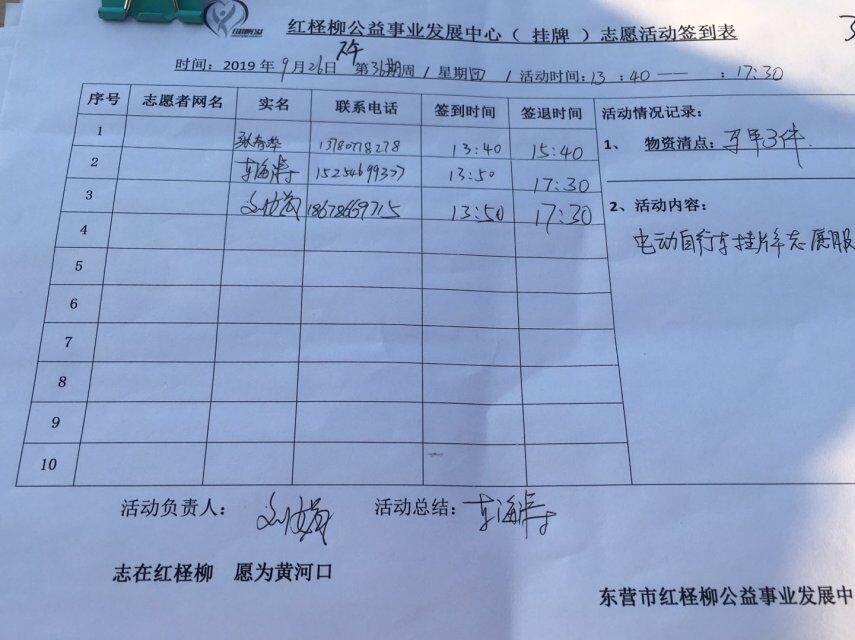 红柽柳公益事业发展中心（ 挂牌 ）志愿活动签到表
时间：2019 年 9 月 26 日 下午 第36期周 / 星期四 / 活动时间：13 ：40 —— ：17:30
序号 志愿者网名 实名 联系电话 签到时间 签退时间 活动情况记录：
1 13780718278 13:40 15:40
1、 物资清点：马甲3件
2 15254699377 13:50 17:30
3 18678669715 13:50 17:30
2、活动内容：
4
电动自行车挂牌志愿服
5
6
7
8
9
10
活动负责人：
活动总结：
志在红柽柳 愿为黄河口
东营市红柽柳公益事业发展中